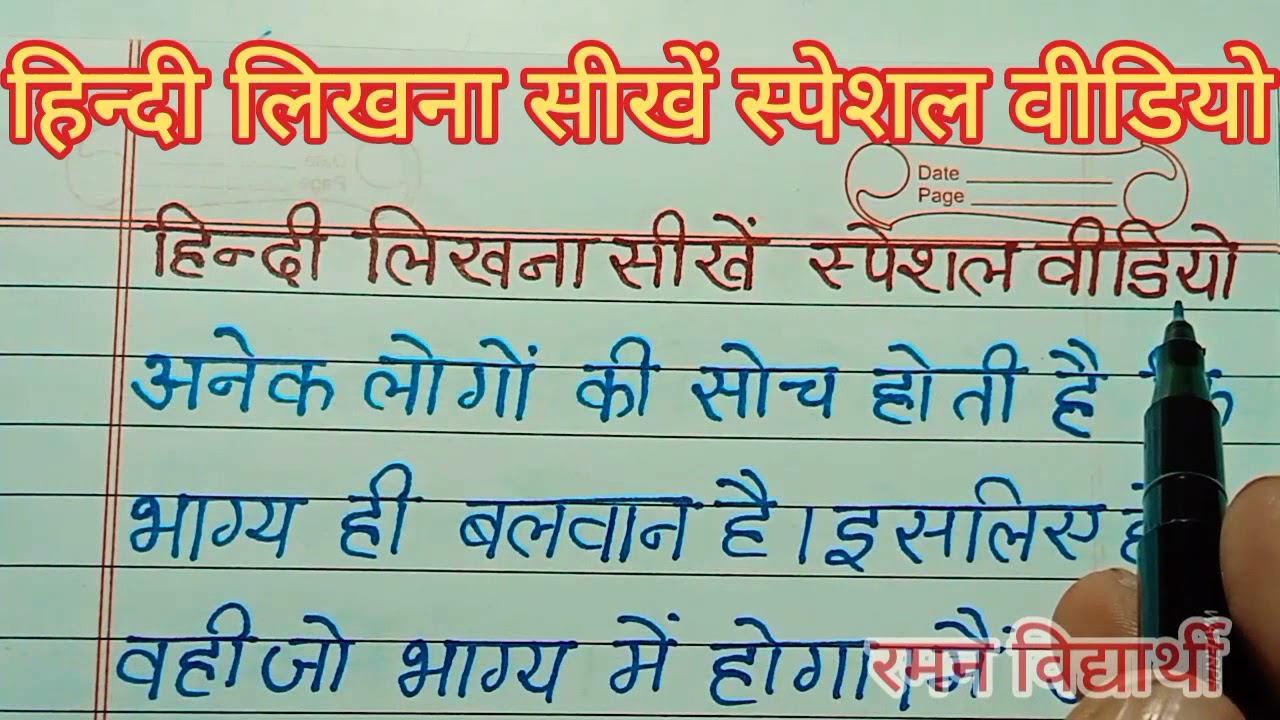 हिन्दी लिखना सीखें स्पेशल वीडियो
Date
Page
हिन्दी लिखना सीखें स्पेशल वीडियो
अनेक लोगों की सोच होती है
भाग्य ही बलवान है। इसलिए
वही जो भाग्य में होगा।
विद्यार्थी